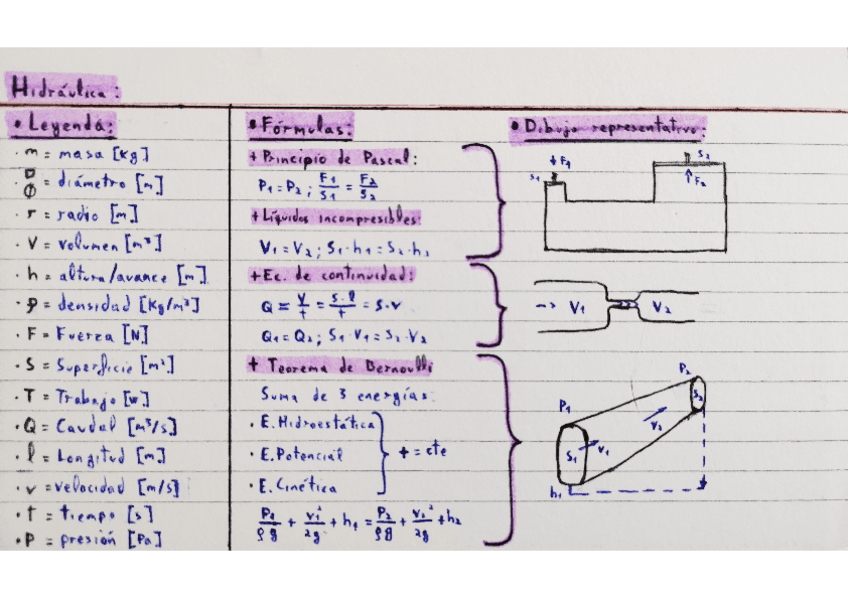 Hidráulica:
• Leyenda:
· m = masa [kg]
· D/Ø = diámetro [m]
· r = radio [m]
· V = volumen [m³]
· h = altura/avance [m]
· ρ = densidad [Kg/m³]
· F = Fuerza [N]
· S = Superficie [m²]
· T = Trabajo [w]
· Q = Caudal [m³/s]
· l = Longitud [m]
· v = velocidad [m/s]
· t = tiempo [s]
· P = presión [Pa]
• Fórmulas:
+ Principio de Pascal:
P₁ = P₂ ; F₁/S₁ = F₂/S₂
+ Líquidos incompresibles:
V₁ = V₂ ; S₁·h₁ = S₂·h₂
+ Ec. de continuidad:
Q = V/t = S·l/t = S·v
Q₁ = Q₂ ; S₁·V₁ = S₂·V₂
+ Teorema de Bernoulli
Suma de 3 energías:
· E. Hidroestática
· E. Potencial
· E. Cinética
+ = cte
P₁/ρg + v₁²/2g + h₁ = P₂/ρg + v₂²/2g + h₂
• Dibujo representativo:
F₁
S₁
S₂
F₂
V₁
V₂
P₁
P₂
S₁
v₁
v₂
S₂
h₁